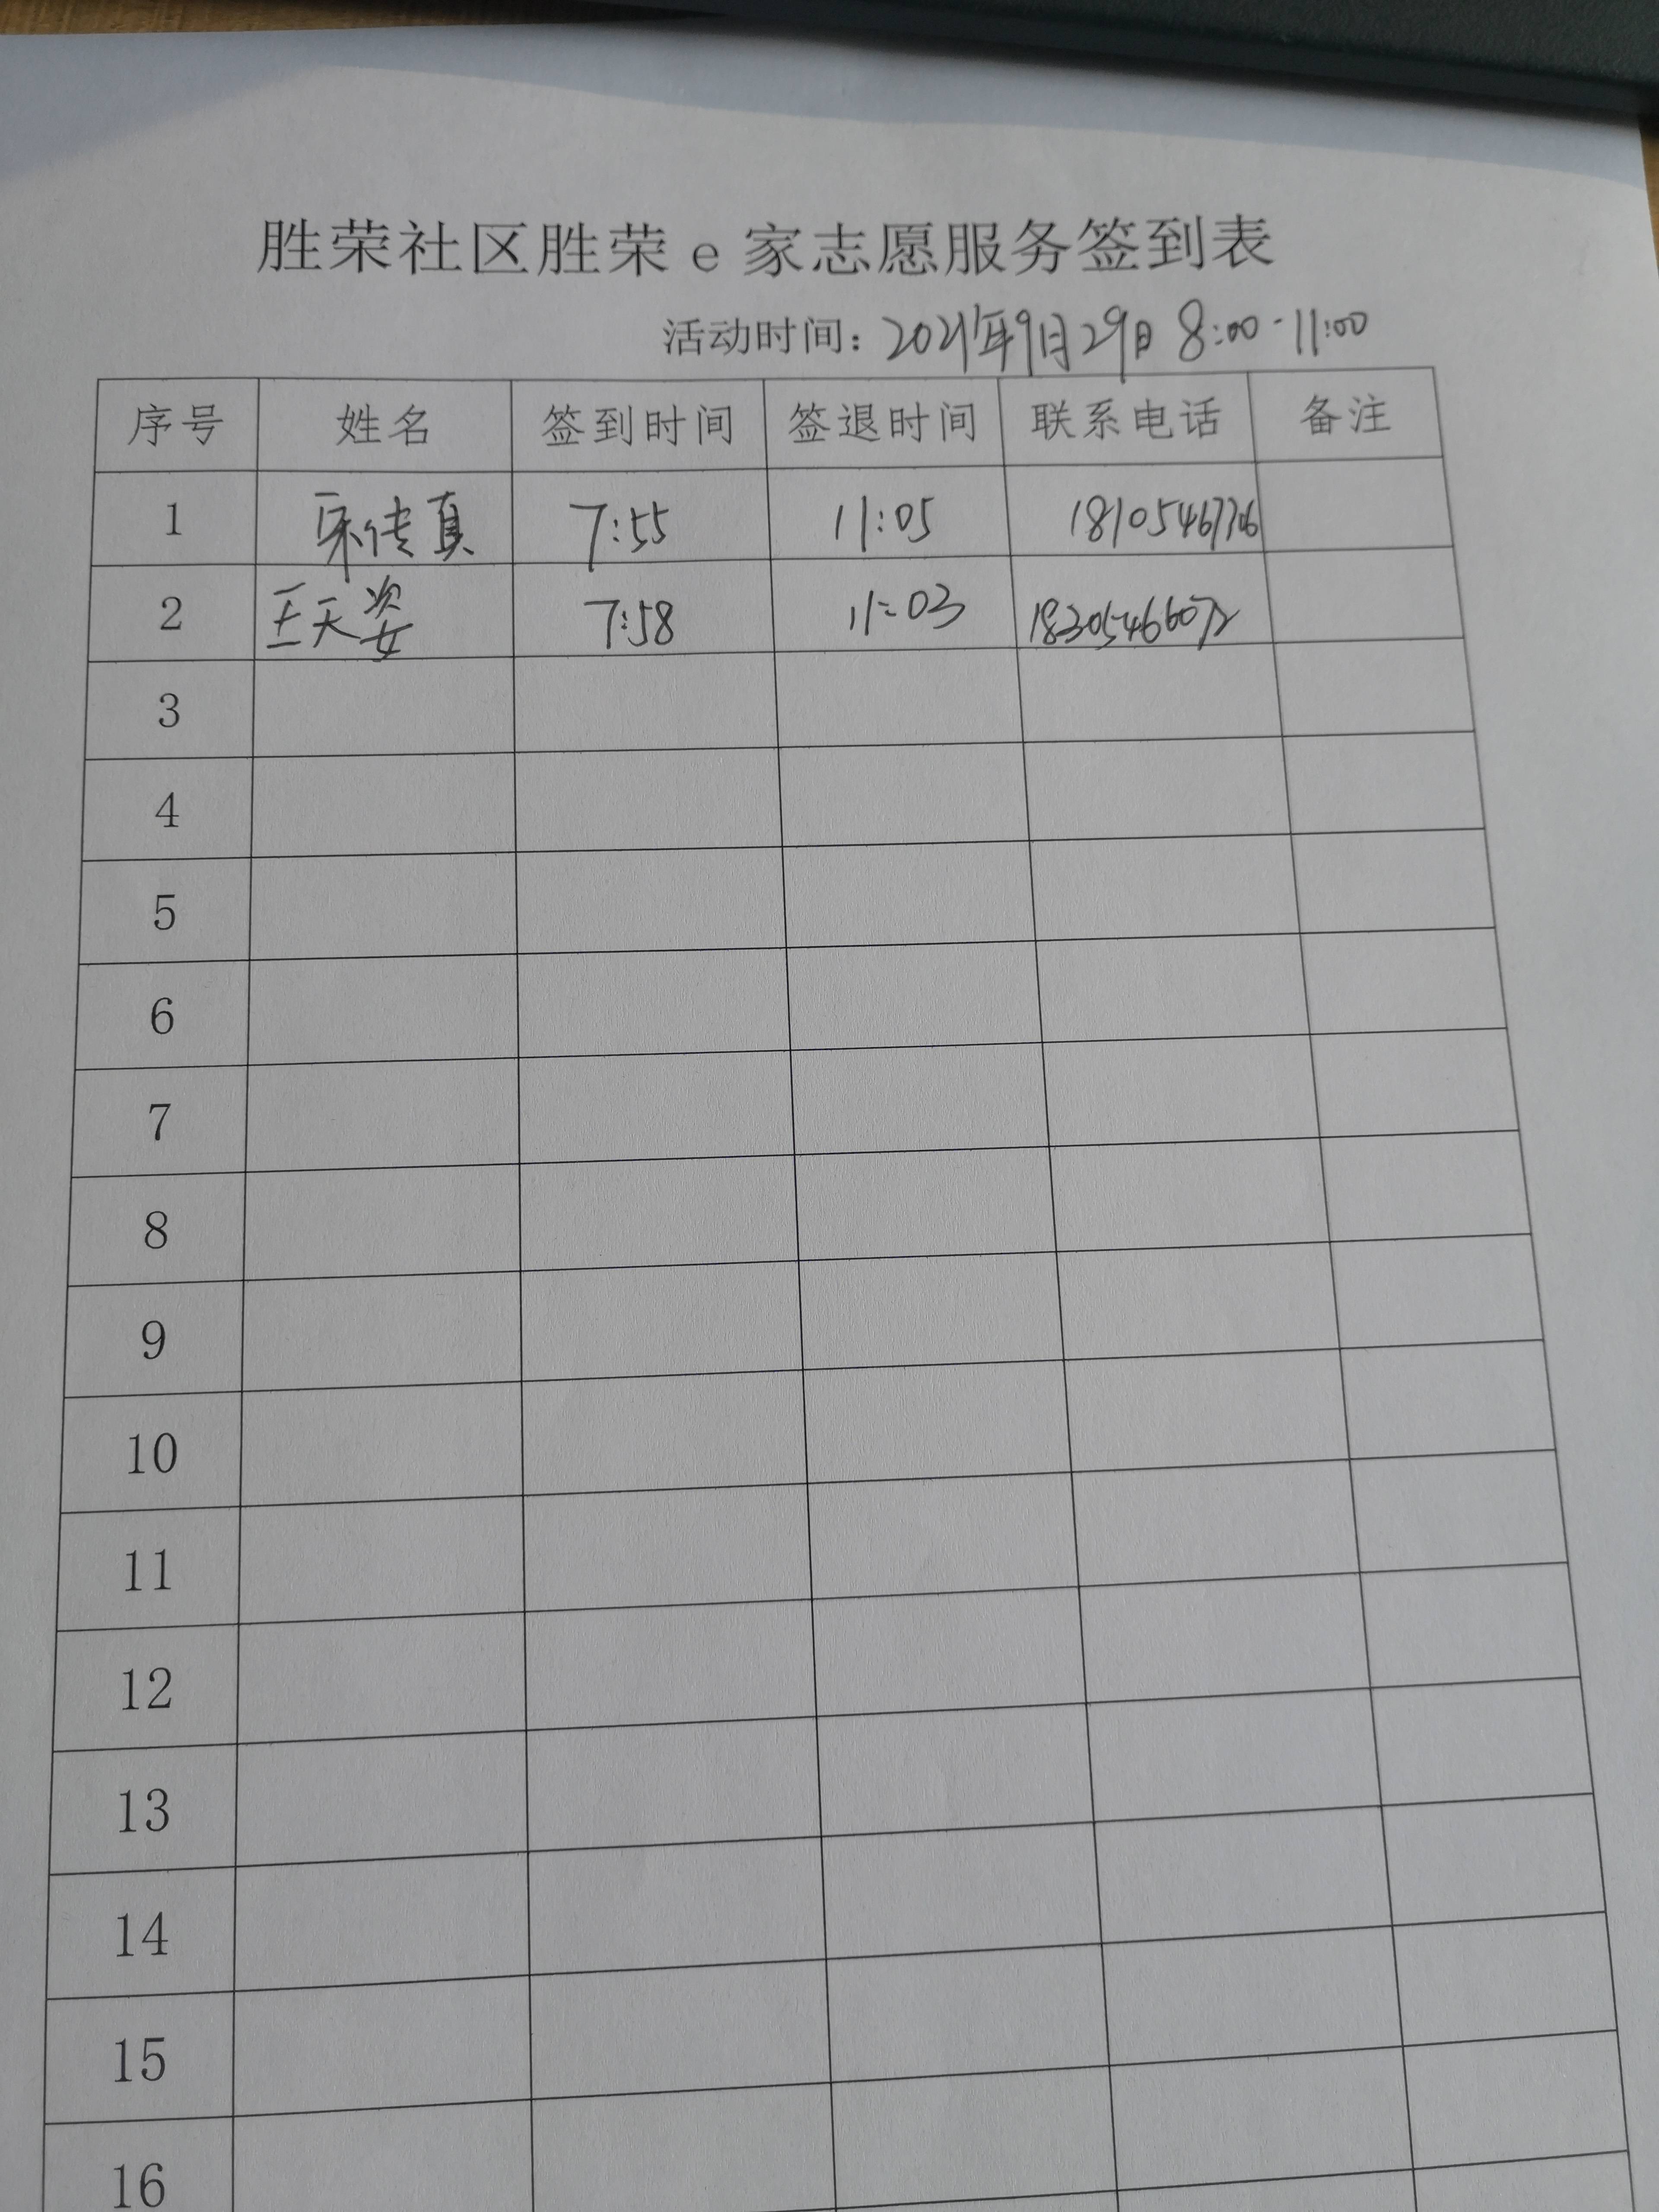 胜荣社区胜荣e家志愿服务签到表
活动时间：2021年9月29日 8:00-11:00
序号 姓名 签到时间 签退时间 联系电话 备注
1 传真 7:55 11:05
2 王天姿 7:58 11:03 18305466072
3
4
5
6
7
8
9
10
11
12
13
14
15
16